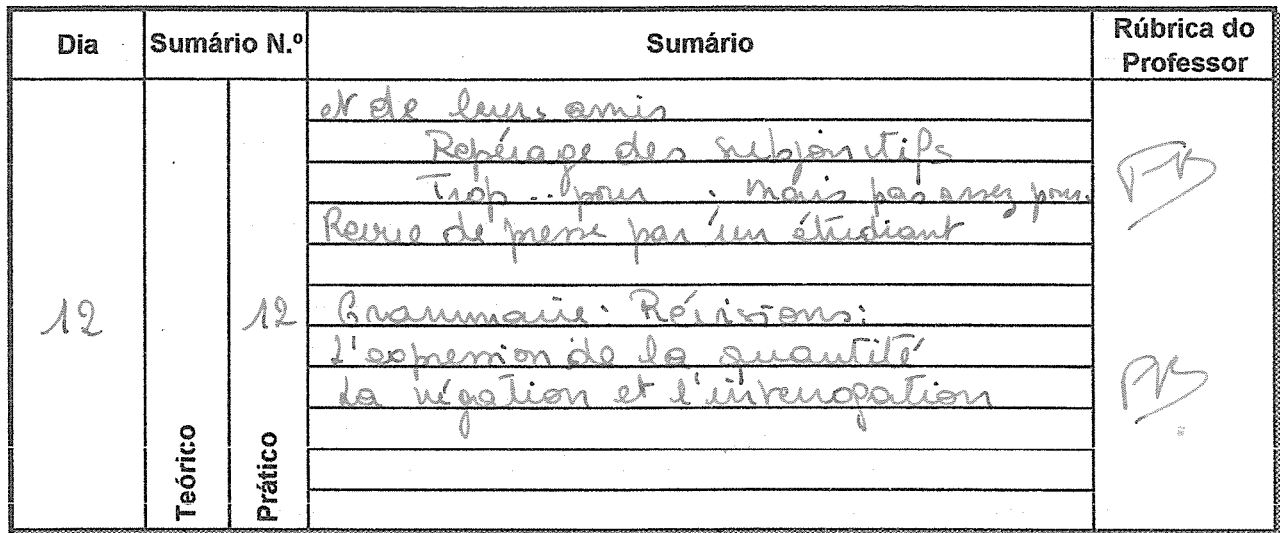 Dia Sumário N.º Sumário Rúbrica do Professor
et de leurs amis
Repérage des subjonctifs
Trop .. pour . mais pas assez pour.
Revue de presse par un étudiant
12 12 Grammaire: Révisions:
L'expression de la quantité
La négation et l'interrogation
Teórico
Prático